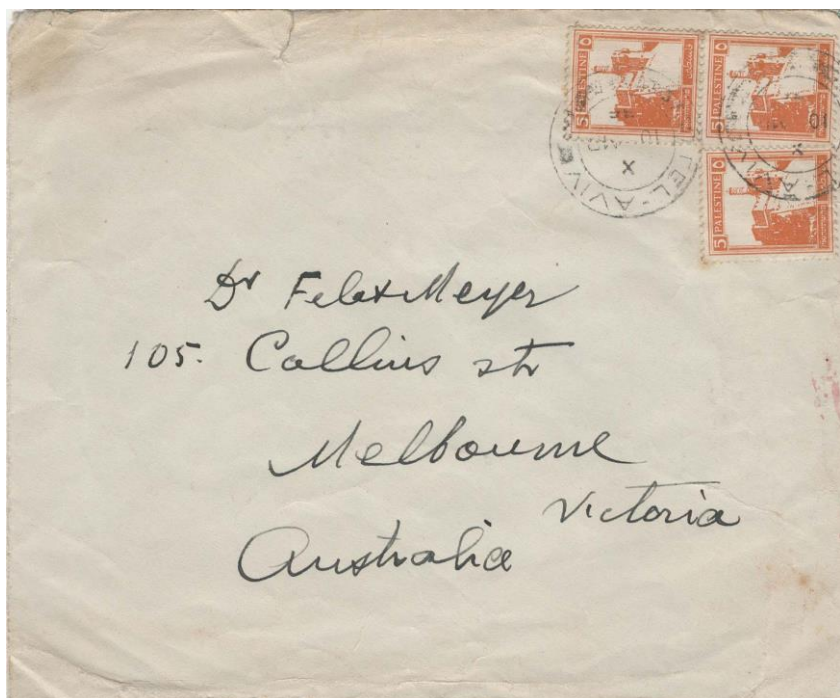 5 PALESTINE ٥
5 PALESTINE ٥
5 PALESTINE ٥
TEL-AVIV
10
X
TEL-AVIV
10
X
Dr Felix Meyer
105. Collins str
Melbourne
Victoria
Australia